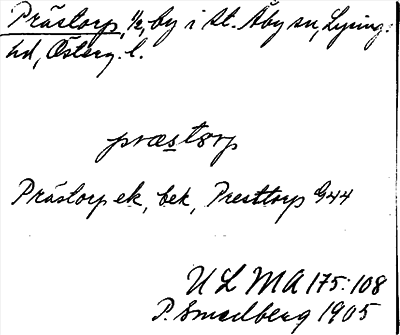 Prästorp, 1/2, by i St. Åby sn, Lysing:
hd, Österg. l.
præstorp
Prästorp ek, bek, Presttorp G44
ULMA 175:108
P. Smedberg 1905